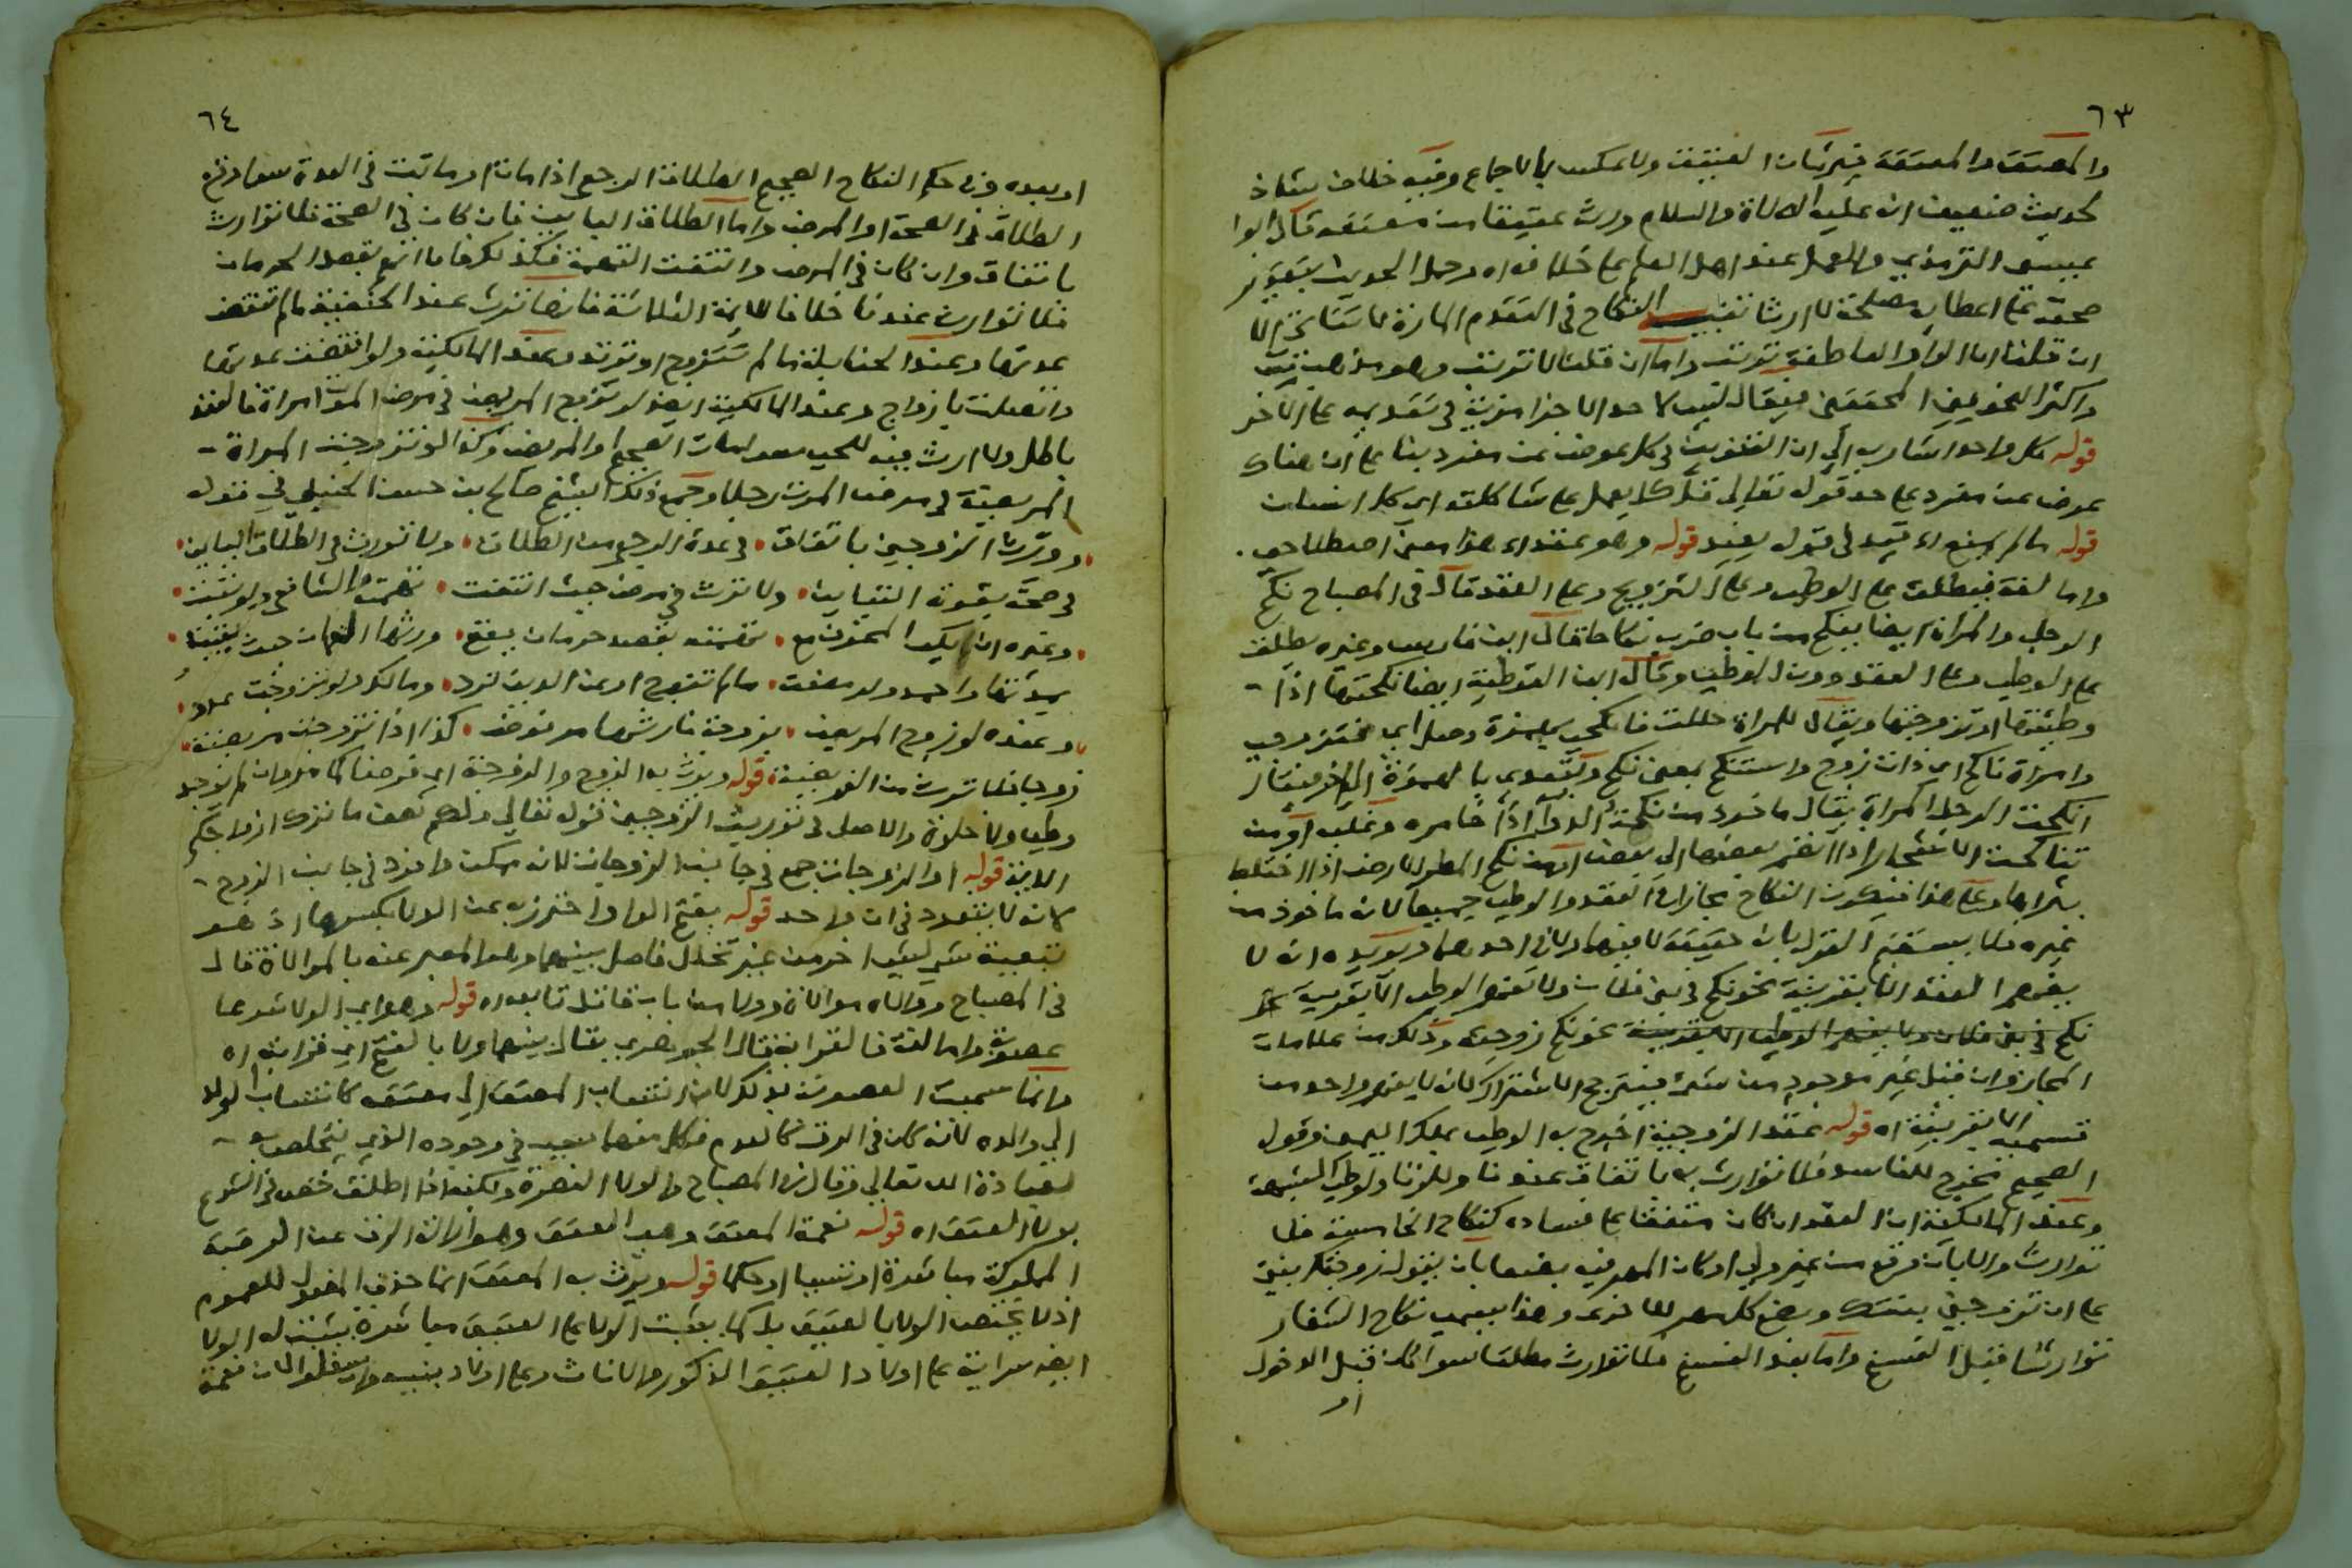 ٦٣
والمعتق والمعتقة فيرثان العتيق ولا عكس بالاجماع وفيه خلاف شاذ
لحديث ضعيف انه عليه الصلاة والسلام ورث عتيقا من معتقه قال ابوا
عيسى الترمذي والعمل عند اهل العلم على خلافه اه وحمل الحديث بتقدير
صحته على اعطايه مصلحة لا ارثا تنبيه النكاح في التقدم المارة لا يتاخر الا
ان قلنا ان الواو العاطفة ترتب واما ان قلنا لا ترتب وهو مذهب
واكثر النحويين المحققين فيقال ليس لاحد الاجزا مزية في تقديمه على الاخر
قوله كل واحد اشار به الي ان التنوين في كل عوض عن مفرد بنا على ان هناك
عوض عن مفرد على حد قوله تعالى قل كل يعمل على شاكلته اي كل انسان
قوله ما لم يمنع اه قيد في قوله يفيد قوله وهو عقد اه هذا معنى اصطلاحي
واما لغة فيطلق على الوطي وعلى التزويج وعلى العقد قال في المصباح نكح
الرجل والمراة ايضا ينكح من باب ضرب نكاحا قال ابن فارس وغيره يطلق
على الوطي وعلى العقد دون الوطي وقال ابن القوطية ايضا نكحتها اذا
وطئتها او تزوجتها ويقال للمراة حللت فانكحي بهمزة وصل اي فتزوجي
وامراة ناكح اي ذات زوج واستنكح بمعنى نكح ويتعدى بالهمزة الي اخر فيقال
انكحت الرجل المراة يقال ماخوذ من نكحه الدوا اذا خامره وغلبه او من
تناكحت الاشجار اذا انضم بعضها الي بعض او من نكح المطر الارض اذا اختلط
بثراها وعلى هذا فيكون النكاح مجازا في العقد والوطي جميعا لانه ماخوذ من
غيره فلا يستقيم القول بانه حقيقة لا فيهما ولا في احدهما ويويده انه لا
يفهم العقد الا بقرينة نحو نكح في بني فلان ولا يفهم الوطي الا بقرينة نحو
نكح في بني فلان ولا يفهم الوطي الا بقرينة نحو نكح زوجته وذلك من علامات
المجاز وان قيل غير ماخوذ من شي فيترجح الاشتراك لانه لا يفهم واحد من
قسميه الا بقرينة اه قوله عقد الزوجية اخرج به الوطي بملك اليمين وقوله
الصحيح مخرج للفاسد فلا توارث به باتفاق عندنا وللزنا ولوطي الشبهة
وعند المالكية ان العقد ان كان متفقا على فساده كنكاح الخامسة فلا
توارث والا بان وقع من غير ولي او كان المهر فيه بضعا بان يقول زوجتك بنتي
على ان تزوجني بنتك وبضع كل مهر للاخرى وهذا يسمى نكاح الشغار
توارثا قبل الفسخ واما بعد الفسخ فلا توارث مطلقا سوا كان قبل الدخول
او
٦٤
او بعده وفي حكم النكاح الصحيح الطلاق الرجعي اذا مات او ماتت في العدة سوا وقع
الطلاق في الصحة او المرض واما الطلاق الباين فان كان في الصحة فلا توارث
باتفاق وان كان في المرض وانتفت التهمة فكذلك واما ان اتهم بقصد الحرمان
فلا توارث عندنا خلافا للايمة الثلاثة فانها ترث عند الحنفية ما لم تنقض
عدتها وعند الحنابلة ما لم تتزوج او ترتد وعند المالكية ولو انقضت عدتها
واتصلت بازواج وعند المالكية ايضا لو تزوج المريض في مرض الموت امراة فالعقد
باطل ولا ارث فيه للحي سوا مات الصحيح او المريض وكذا لو تزوجت المراة
المريضة في مرض الموت رجلا وجمع ذلك الشيخ صالح بن حسن الحنبلي في قوله
وورث الزوجين باتفاق في عدة الرجعي من الطلاق ولا تورث في الطلاق الباين
في صحة يقوته التباين ولا ترث في مرض حيث انتفت تهمته والشافعي ولو ثبتت
وغيره ان يكن المخوف مع تهمته بقصد حرمان يقع ورثها النعمان حيث
عدتها واحمد ولو مضت ما لم تتزوج او عن الدين ترد ومالك ولو تزوجت عدد
وعنده لو زوج المريض بزوجة فارثها مرفوض كذا اذا تزوجت مريضة
زوجا فلا ترث من الفريضة قوله ويرث به الزوج والزوجة اي فرضا كاملا وان لم يوجد
وطي ولا خلوة والاصل في توريث الزوجين قوله تعالى ولكم نصف ما ترك ازواجكم
الاية قوله او الزوجات جمع في جانب الزوجات لانه ممكن وافرد في جانب الزوج
لانه لا يتعدد في ان واحد قوله بفتح الواو احترز به عن الولا بكسرها اذ هو
تبعية شي لشي اخر من غير تخلل فاصل بينهما وهو المعبر عنه بالموالاة قال
في المصباح ووالاه موالاة وولا من باب قاتل تابعه اه قوله وهو اي الولا شرعا
عصوبة واما لغة فالقرابة قال الجوهري يقال بينهما ولا بالفتح اي قرابة اه
وانما سميت العصوبة بذلك لان انتساب المعتق الي معتقه كانتساب الولد
الي والده لانه كان في الرق كالعدم فكل منهما سبب في وجوده الذي يتخلص به
لعبادة الله تعالى وقال في المصباح والولا النصرة ولكنه اذا اطلق خص في الشرع
بولا العتق اه قوله نعمة المعتق وهي العتق وهو ازالة الرق عن الرقبة
المملوكة مباشرة او تسببا او حكما قوله ويرث به المعتق انما حذف المفعول للعموم
اذ لا يختص الولا بالعتيق بل كما يثبت الولا على العتيق مباشرة يثبت له الولا
ايضا سراية على اولاد العتيق الذكور والاناث وعلى اولاد بنيه وان سفلوا لان نعمة